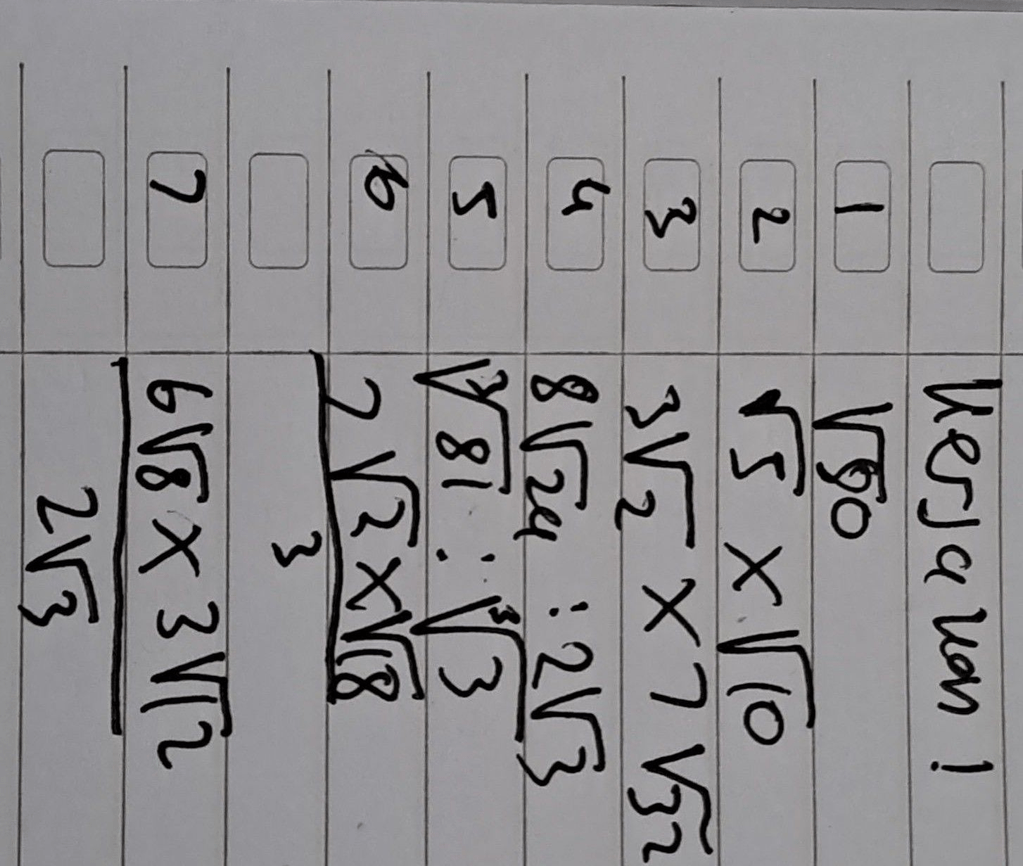 Kerjakan !
1 √50
2 √5 × √10
3 3√2 × 7√32
4 8√24 : 2√3
5 ∛81 : ∛3
6 2√2 × √18
3
7 6√8 × 3√12
2√3